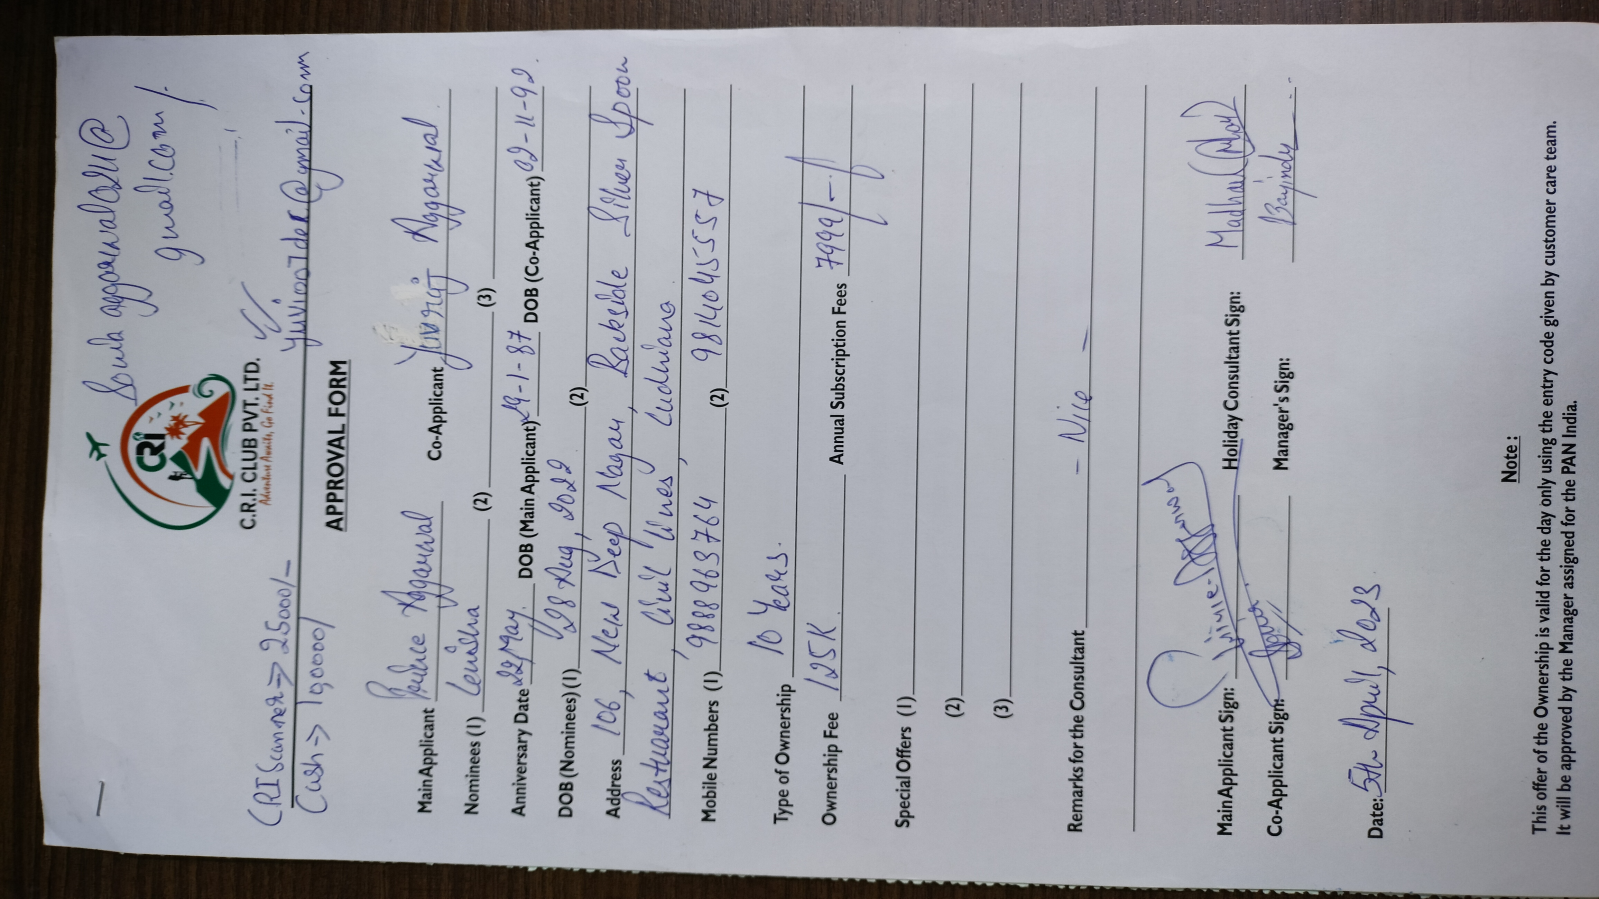 aggarwal0211@
gmail.com
CRI
C.R.I. CLUB PVT. LTD.
Adventure Awaits, Go Find It.
CRI Scanner → 25000/-
yuvi007der@gmail.com
Cash → 10,000/
APPROVAL FORM
Main Applicant Prince Aggarwal Co-Applicant Aggarwal
Nominees (1) (2) (3)
Anniversary Date 22 May. DOB (Main Applicant) 29-1-87 DOB (Co-Applicant) 02-11-92.
DOB (Nominees) (1) 28 Aug, 2022 (2)
Address 106, New Deep Nagar, Backside Silver Spoon
Restuarant, Civil Lines, Ludhiana.
Mobile Numbers (1) 9888963764, (2) 9814045557
Type of Ownership 10 Years.
Ownership Fee 125K. Annual Subscription Fees 7999/-
Special Offers (1)
(2)
(3)
Remarks for the Consultant - Nice -
Main Applicant Sign: Holiday Consultant Sign: Madhav
Co-Applicant Sign: Manager's Sign:
Date: 5th April, 2023
Note :
This offer of the Ownership is valid for the day only using the entry code given by customer care team.
It will be approved by the Manager assigned for the PAN India.